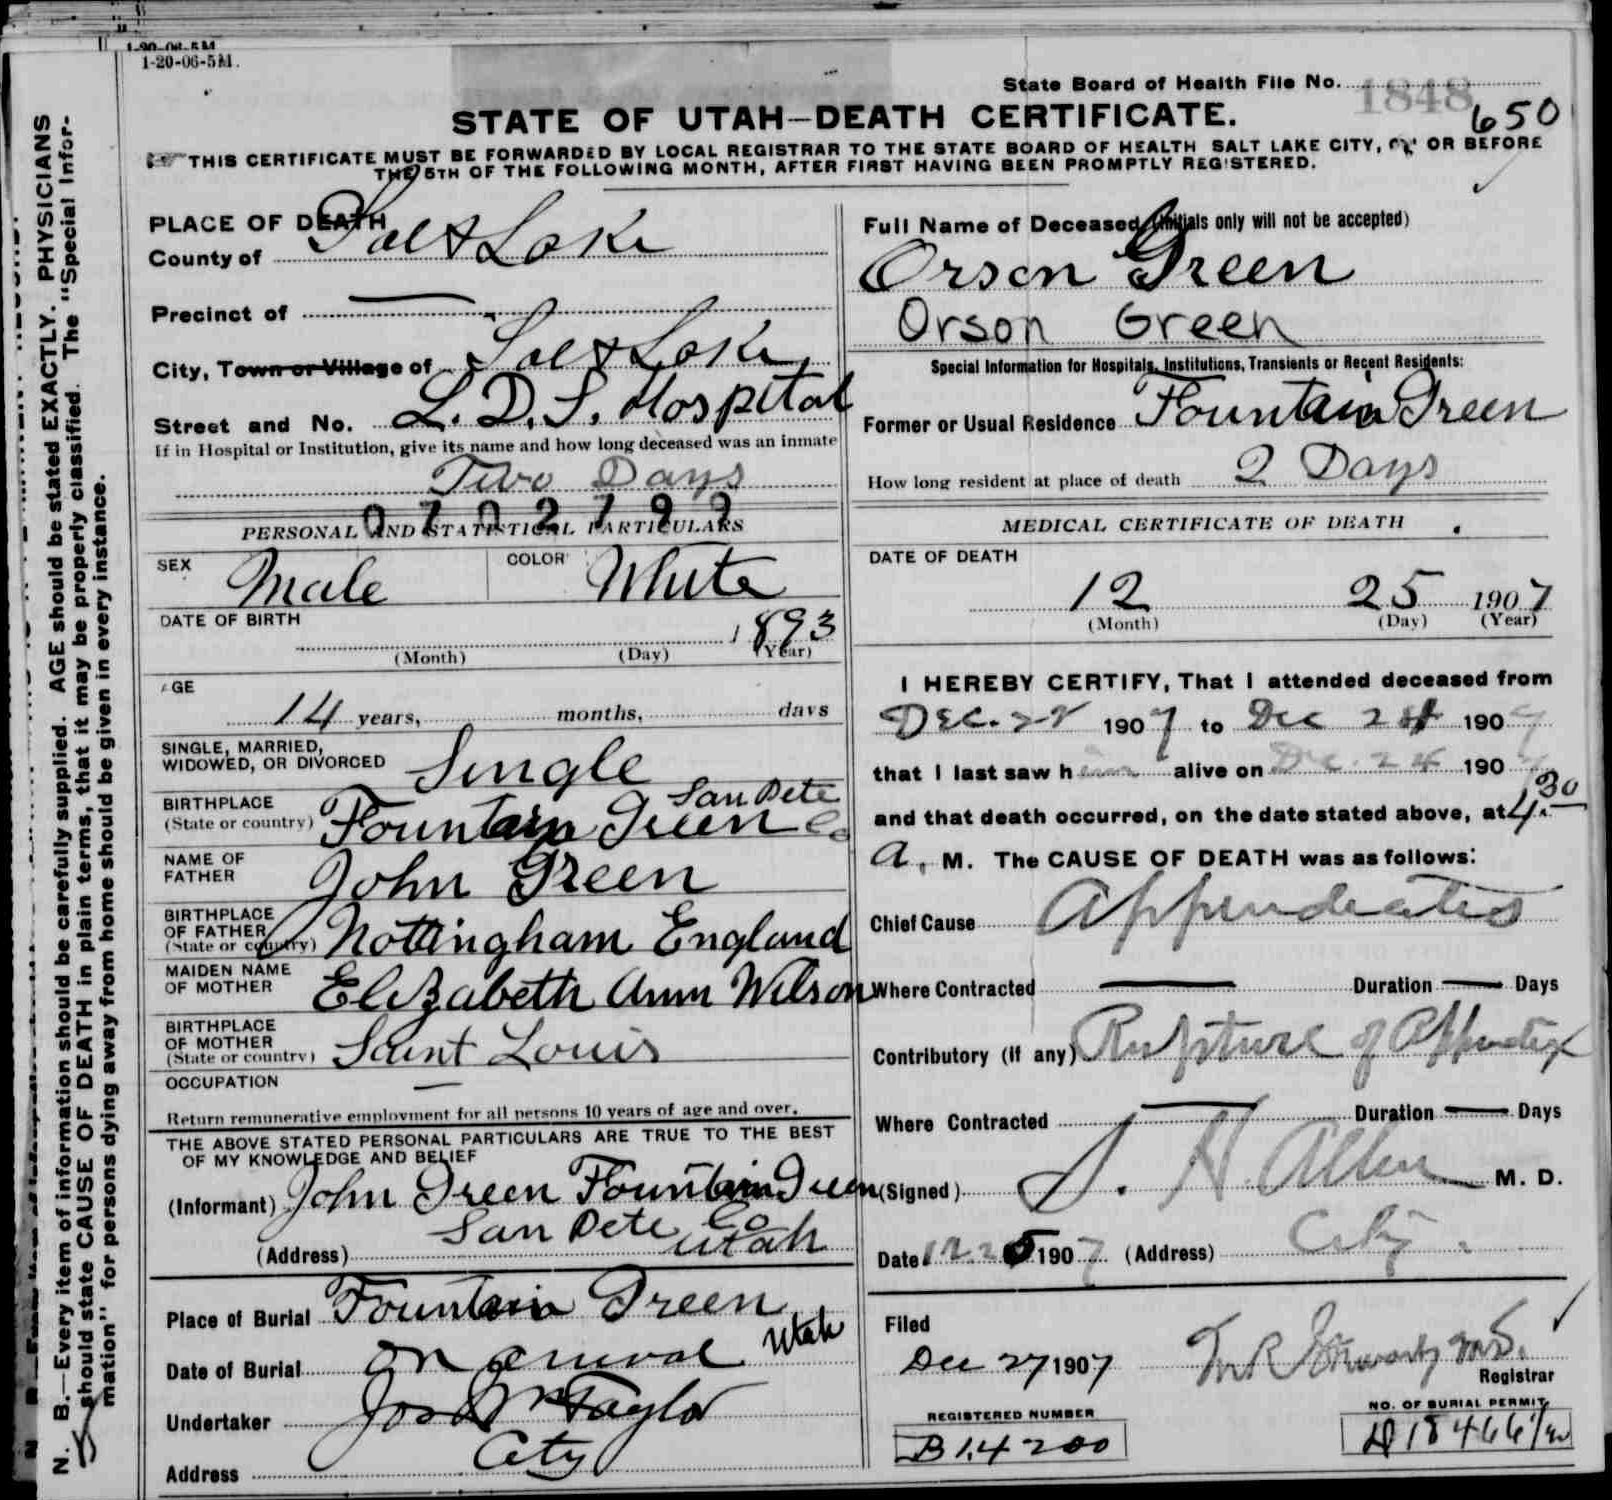 1-20-06-5M.
1-20-06-5M.
State Board of Health File No. 1848
650
STATE OF UTAH—DEATH CERTIFICATE.
THIS CERTIFICATE MUST BE FORWARDED BY LOCAL REGISTRAR TO THE STATE BOARD OF HEALTH SALT LAKE CITY, OR BEFORE
THE 5TH OF THE FOLLOWING MONTH, AFTER FIRST HAVING BEEN PROMPTLY REGISTERED.
N. B.—Every item of information should be carefully supplied. AGE should be stated EXACTLY. PHYSICIANS
should state CAUSE OF DEATH in plain terms, that it may be properly classified. The "Special Infor-
mation" for persons dying away from home should be given in every instance.
PLACE OF DEATH
County of Salt Lake
Precinct of —
City, Town or Village of Salt Lake
Street and No. L. D. S. Hospital
If in Hospital or Institution, give its name and how long deceased was an inmate
Two Days
PERSONAL AND STATISTICAL PARTICULARS
SEX Male COLOR White
DATE OF BIRTH 1893
(Month) (Day) (Year)
AGE
14 years, months, days
SINGLE, MARRIED,
WIDOWED, OR DIVORCED Single
BIRTHPLACE San Pete
(State or country) Fountain Green Co
NAME OF
FATHER John Green
BIRTHPLACE
OF FATHER
(State or country) Nottingham England
MAIDEN NAME
OF MOTHER Elizabeth Ann Wilson
BIRTHPLACE
OF MOTHER
(State or country) Saint Louis
OCCUPATION —
Return remunerative employment for all persons 10 years of age and over.
THE ABOVE STATED PERSONAL PARTICULARS ARE TRUE TO THE BEST
OF MY KNOWLEDGE AND BELIEF
(Informant) John Green Fountain Green
San Pete Co
(Address) Utah
Place of Burial Fountain Green
Utah
Date of Burial on arrival
Undertaker Jos Wm Taylor
Address City
Full Name of Deceased (Initials only will not be accepted)
Orson Green
Orson Green
Special Information for Hospitals, Institutions, Transients or Recent Residents:
Former or Usual Residence Fountain Green
How long resident at place of death 2 Days
MEDICAL CERTIFICATE OF DEATH
DATE OF DEATH
12 25 1907
(Month) (Day) (Year)
I HEREBY CERTIFY, That I attended deceased from
Dec. 22 1907 to Dec 24 1907
that I last saw him alive on Dec. 24 1907
and that death occurred, on the date stated above, at 4.30
a. M. The CAUSE OF DEATH was as follows:
Chief Cause Appendicitis
Where Contracted — Duration — Days
Contributory (if any) Rupture of Appendix
Where Contracted — Duration — Days
(Signed) S. H. Allen M. D.
Date 12 25 1907 (Address) City.
Filed
Dec 27 1907
Registrar
REGISTERED NUMBER
B14200
NO. OF BURIAL PERMIT